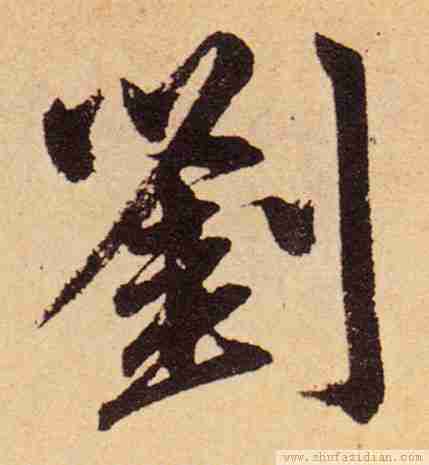 劉
www.shufazidian.com